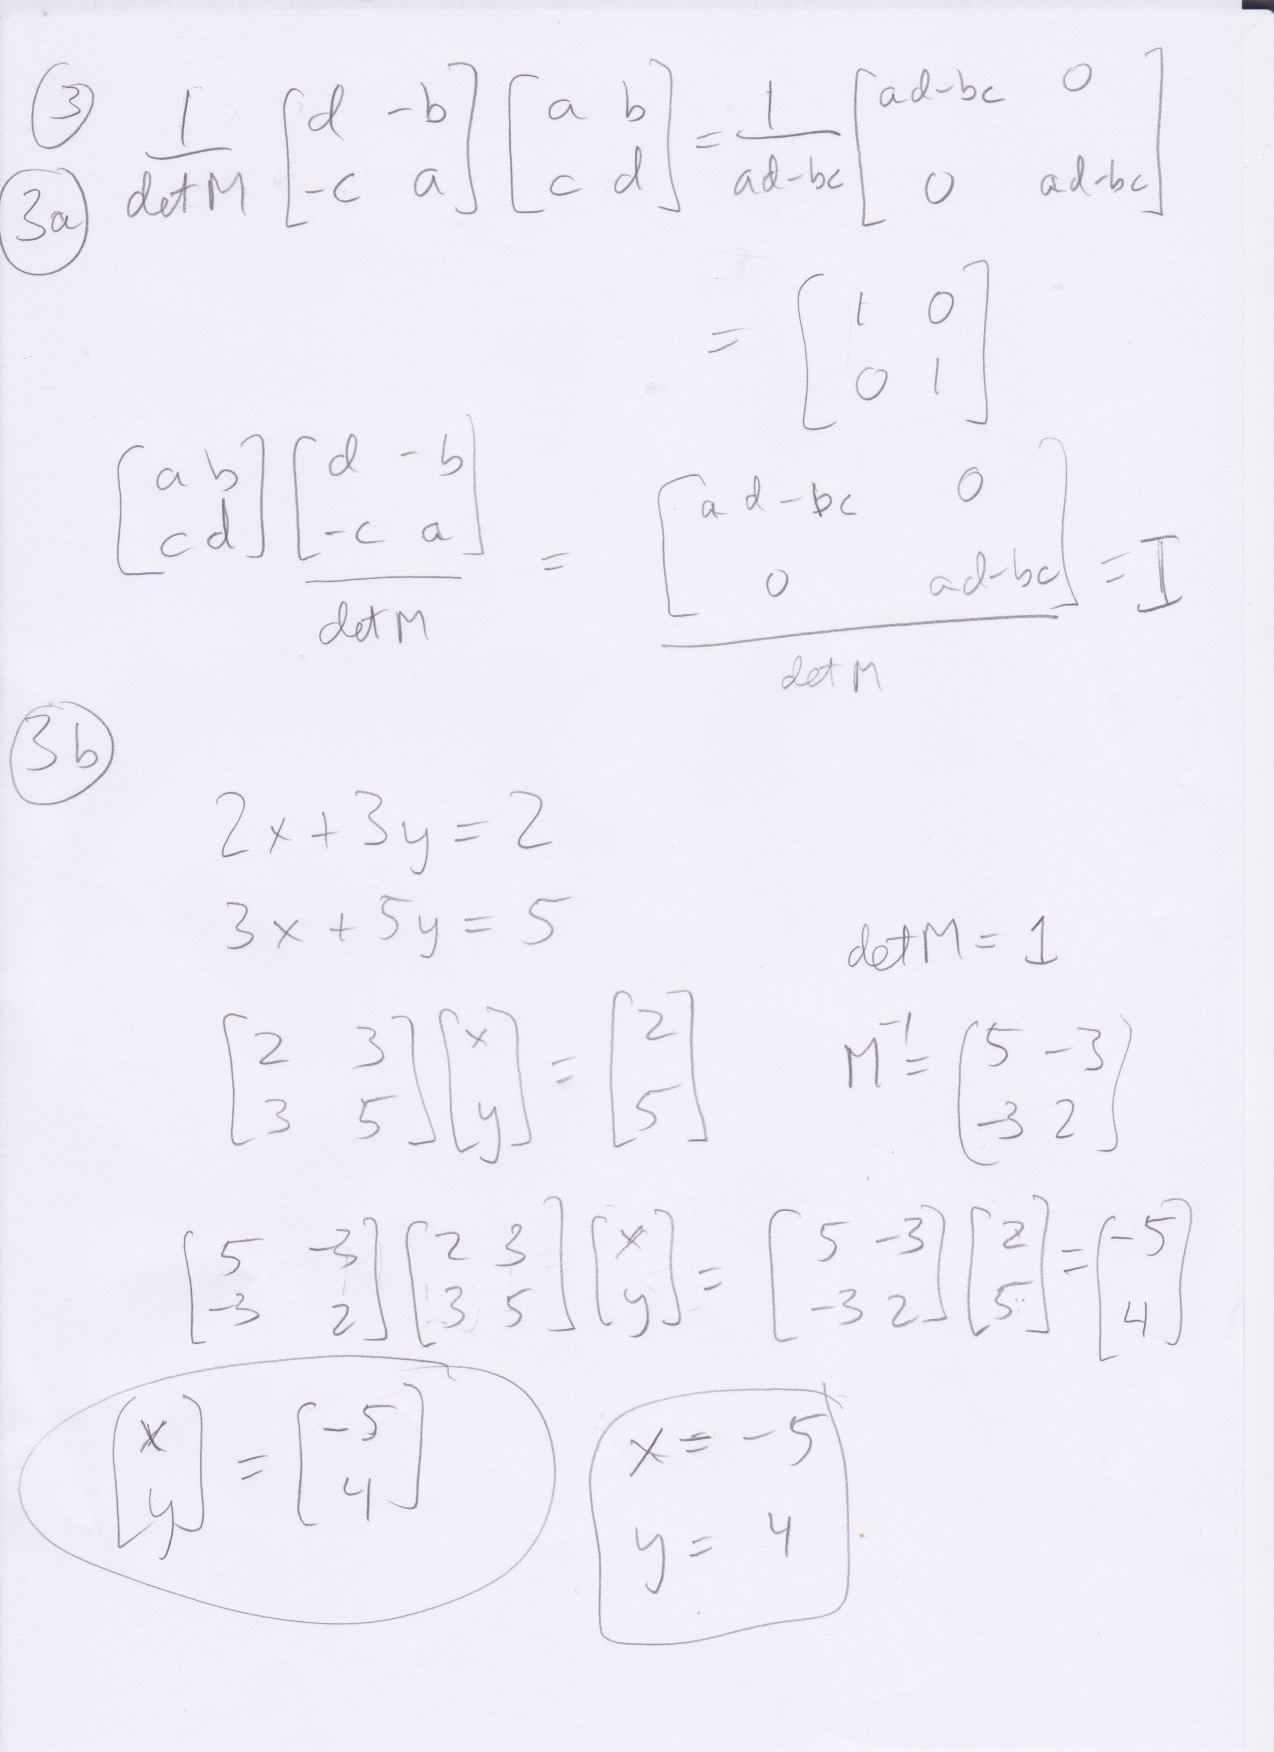 3
3a
1/det M [d -b; -c a] [a b; c d] = 1/ad-bc [ad-bc 0; 0 ad-bc]
= [1 0; 0 1]
[a b; c d] [d -b; -c a]/det M = [ad-bc 0; 0 ad-bc]/det M = I
3b
2x+3y=2
3x+5y=5
det M = 1
[2 3; 3 5] [x; y] = [2; 5]
M^-1 = (5 -3; -3 2)
[5 -3; -3 2] [2 3; 3 5] [x; y] = [5 -3; -3 2] [2; 5] = [-5; 4]
[x; y] = [-5; 4]
x = -5
y = 4